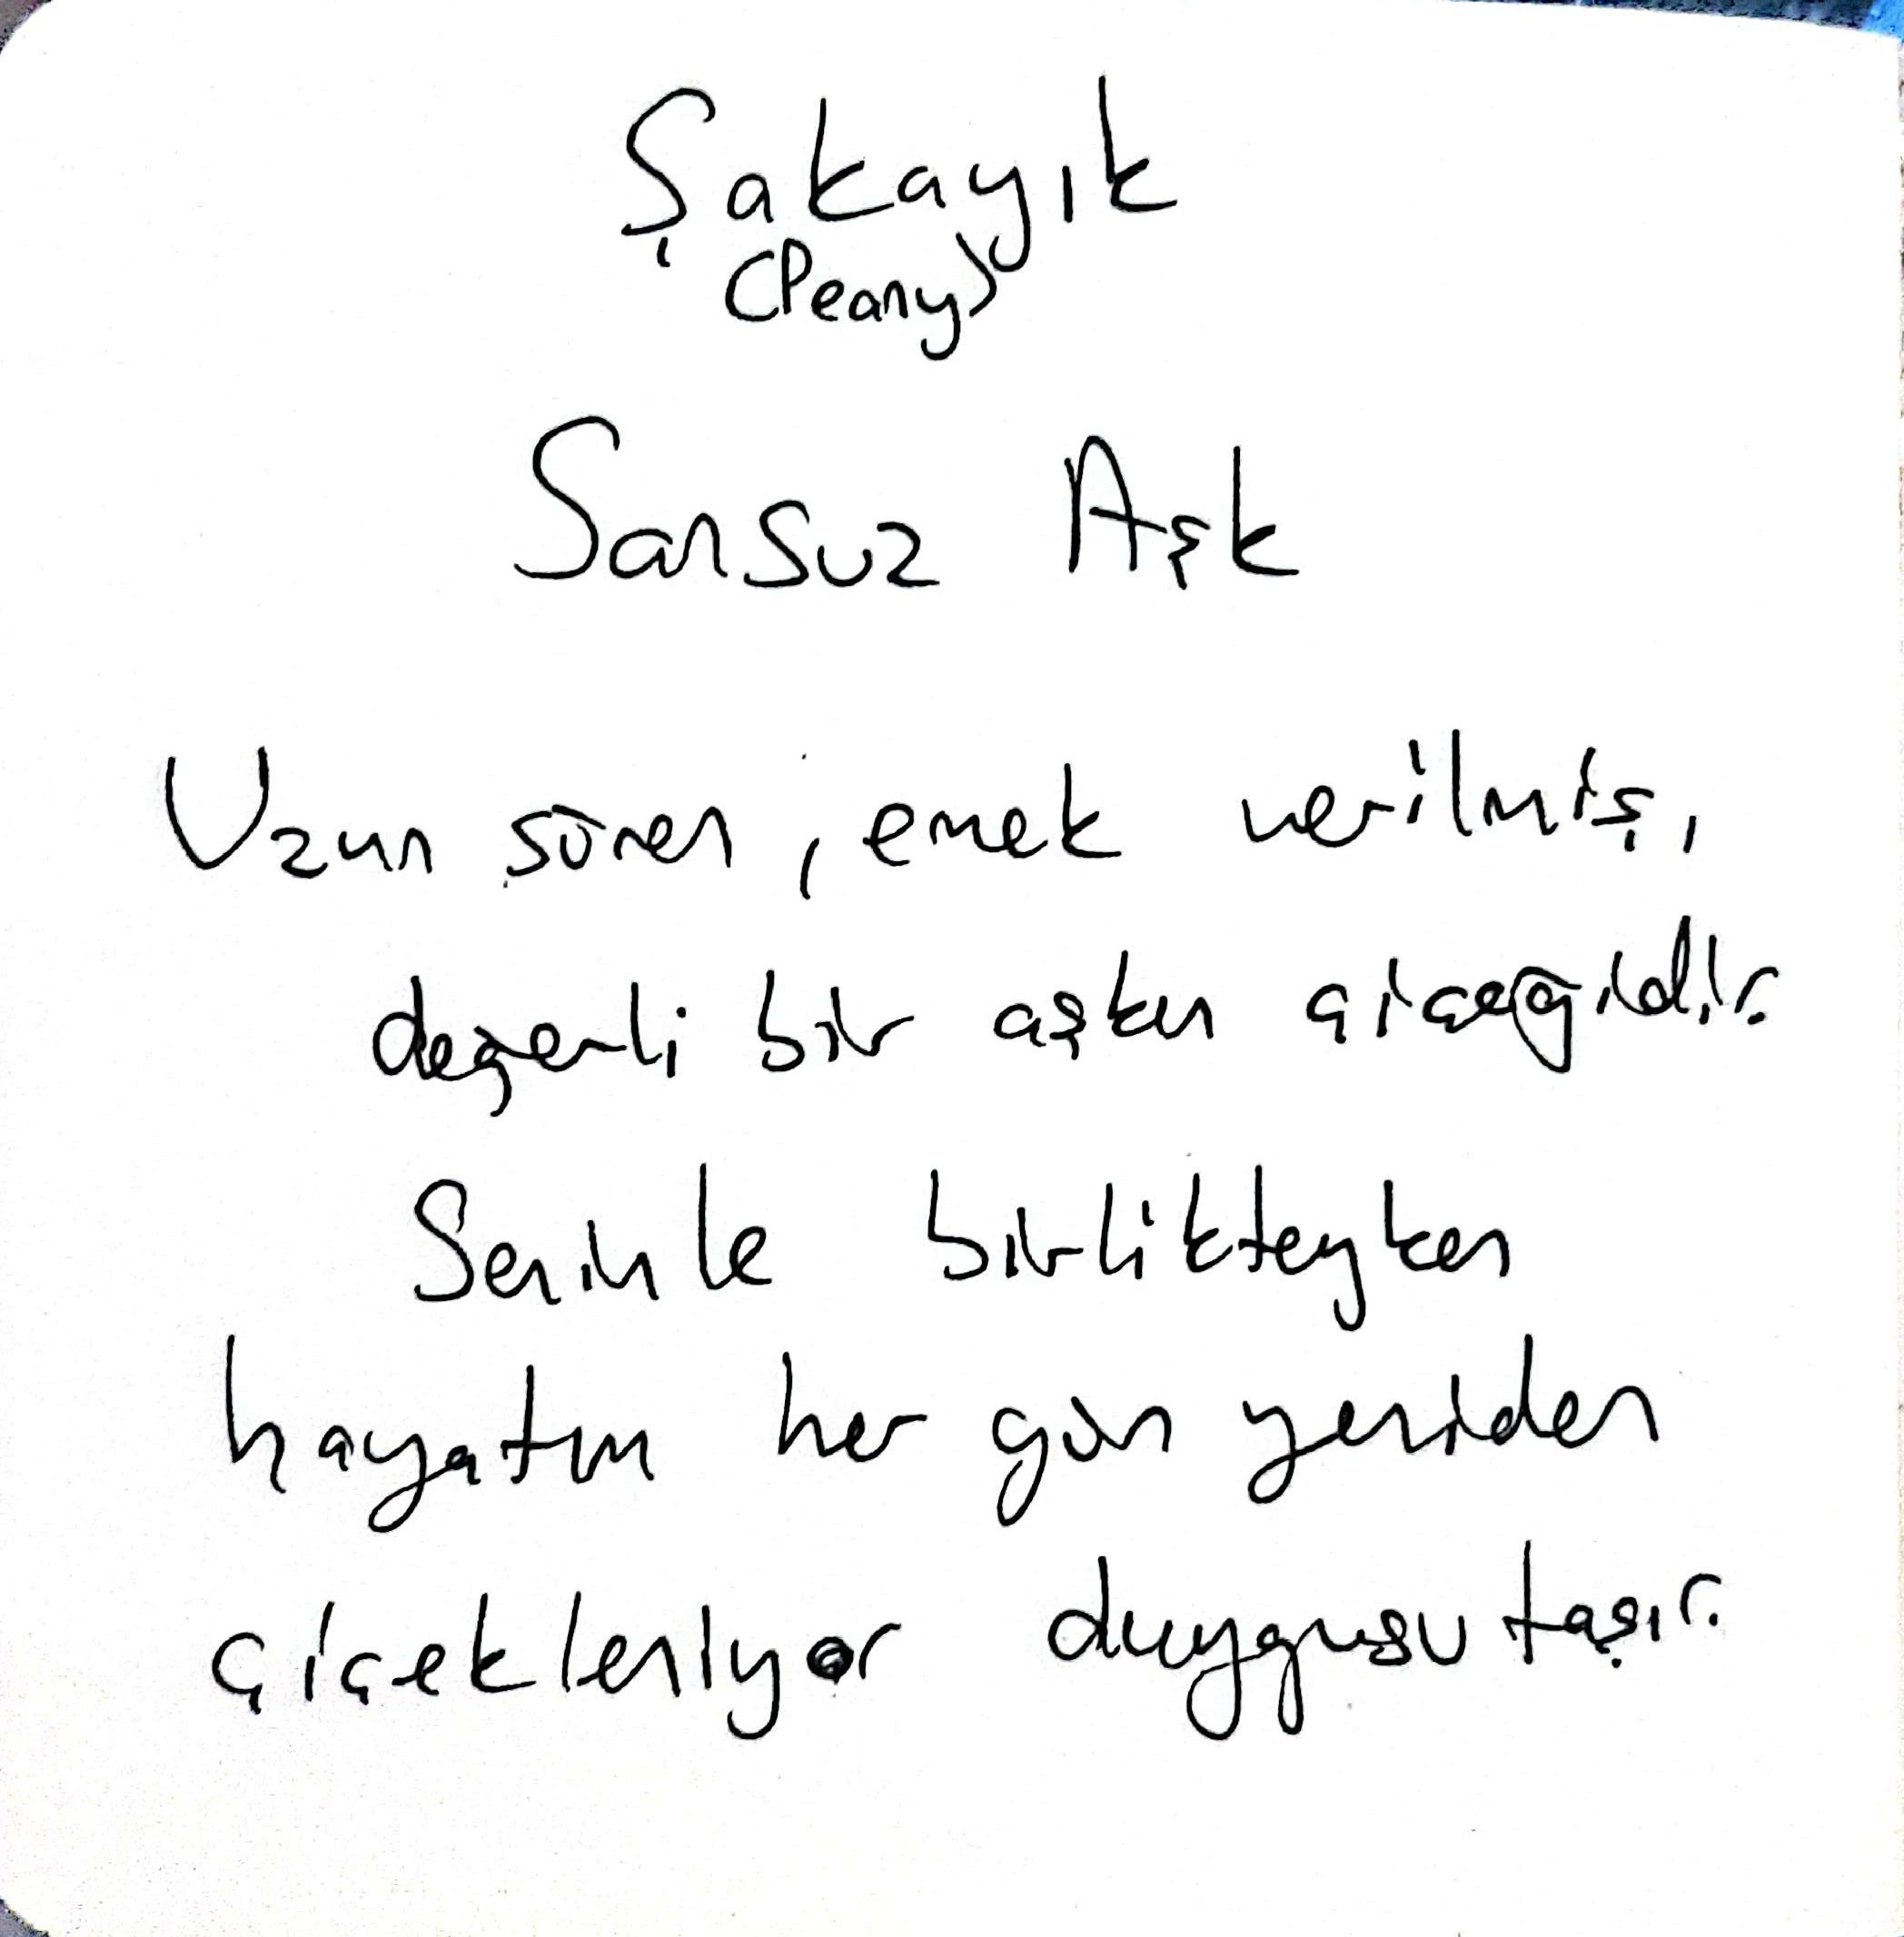 Şakayık
(Peony)
Sonsuz Aşk
Uzun süren, emek verilmiş,
değerli bir aşkın çiçeğidir.
Seninle birlikteyken
hayatım her gün yeniden
çiçekleniyor duygusu taşır.